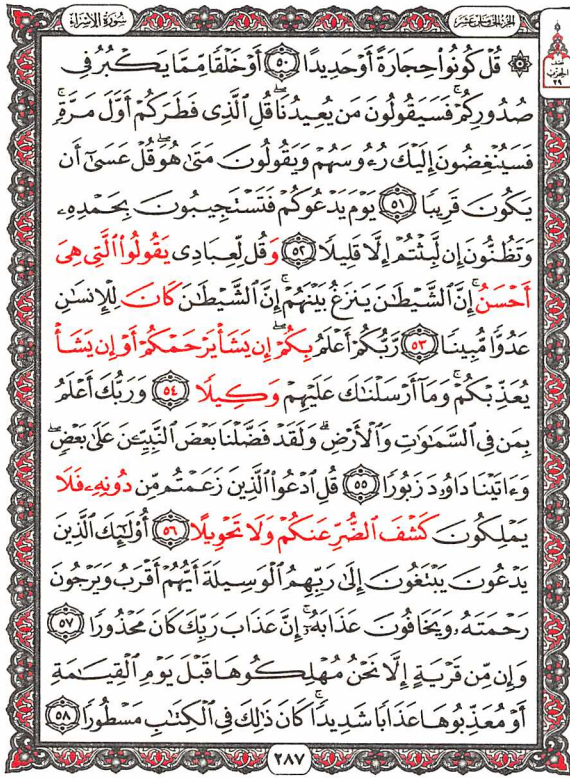 الجزء الخامس عشر
سورة الإسراء
نصف
الحزب
٢٩
۞ قُلْ كُونُواْ حِجَارَةً أَوْ حَدِيدًا ٥٠ أَوْ خَلْقًا مِّمَّا يَكْبُرُ فِى
صُدُورِكُمْ ۚ فَسَيَقُولُونَ مَن يُعِيدُنَا ۖ قُلِ ٱلَّذِى فَطَرَكُمْ أَوَّلَ مَرَّةٍ ۚ
فَسَيُنْغِضُونَ إِلَيْكَ رُءُوسَهُمْ وَيَقُولُونَ مَتَىٰ هُوَ ۖ قُلْ عَسَىٰٓ أَن
يَكُونَ قَرِيبًا ٥١ يَوْمَ يَدْعُوكُمْ فَتَسْتَجِيبُونَ بِحَمْدِهِۦ
وَتَظُنُّونَ إِن لَّبِثْتُمْ إِلَّا قَلِيلًا ٥٢ وَقُل لِّعِبَادِى يَقُولُواْ ٱلَّتِى هِىَ
أَحْسَنُ ۚ إِنَّ ٱلشَّيْطَٰنَ يَنزَغُ بَيْنَهُمْ ۚ إِنَّ ٱلشَّيْطَٰنَ كَانَ لِلْإِنسَٰنِ
عَدُوًّا مُّبِينًا ٥٣ رَّبُّكُمْ أَعْلَمُ بِكُمْ ۖ إِن يَشَأْ يَرْحَمْكُمْ أَوْ إِن يَشَأْ
يُعَذِّبْكُمْ ۚ وَمَآ أَرْسَلْنَٰكَ عَلَيْهِمْ وَكِيلًا ٥٤ وَرَبُّكَ أَعْلَمُ
بِمَن فِى ٱلسَّمَٰوَٰتِ وَٱلْأَرْضِ ۗ وَلَقَدْ فَضَّلْنَا بَعْضَ ٱلنَّبِيِّـۧنَ عَلَىٰ بَعْضٍ ۖ
وَءَاتَيْنَا دَاوُۥدَ زَبُورًا ٥٥ قُلِ ٱدْعُواْ ٱلَّذِينَ زَعَمْتُم مِّن دُونِهِۦ فَلَا
يَمْلِكُونَ كَشْفَ ٱلضُّرِّ عَنكُمْ وَلَا تَحْوِيلًا ٥٦ أُوْلَٰٓئِكَ ٱلَّذِينَ
يَدْعُونَ يَبْتَغُونَ إِلَىٰ رَبِّهِمُ ٱلْوَسِيلَةَ أَيُّهُمْ أَقْرَبُ وَيَرْجُونَ
رَحْمَتَهُۥ وَيَخَافُونَ عَذَابَهُۥٓ ۚ إِنَّ عَذَابَ رَبِّكَ كَانَ مَحْذُورًا ٥٧
وَإِن مِّن قَرْيَةٍ إِلَّا نَحْنُ مُهْلِكُوهَا قَبْلَ يَوْمِ ٱلْقِيَٰمَةِ
أَوْ مُعَذِّبُوهَا عَذَابًا شَدِيدًا ۚ كَانَ ذَٰلِكَ فِى ٱلْكِتَٰبِ مَسْطُورًا ٥٨
٢٨٧